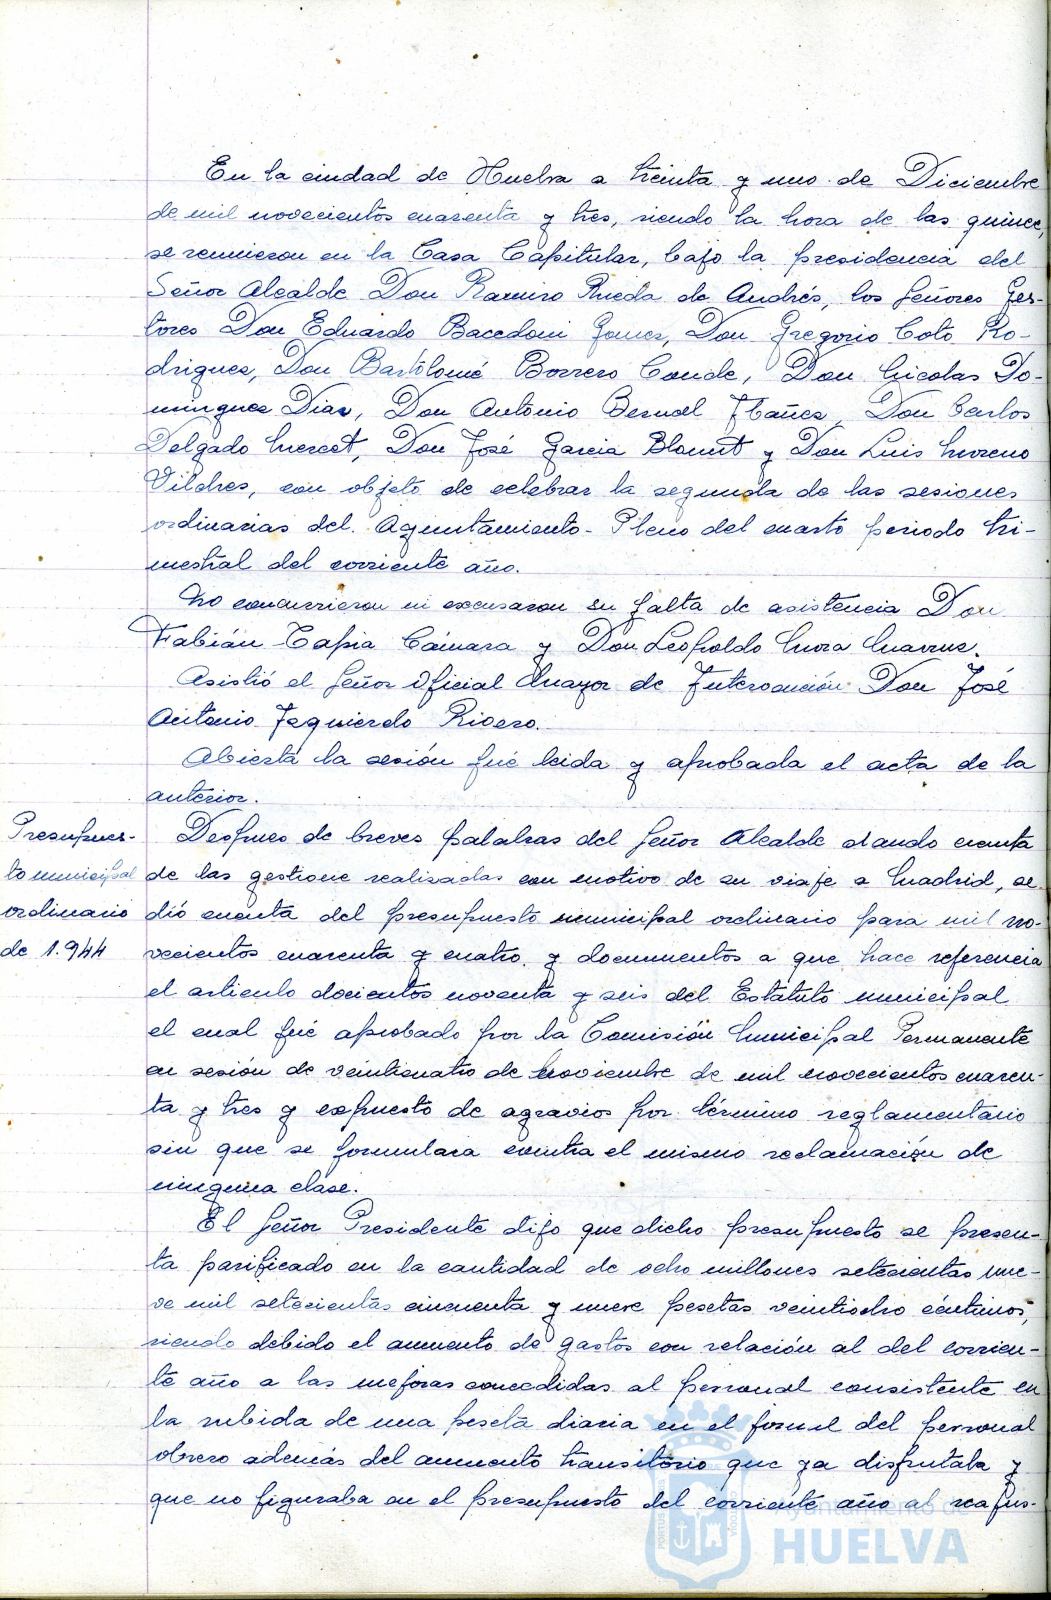 En la ciudad de Huelva a treinta y uno de Diciembre
de mil novecientos cuarenta y tres, siendo la hora de las quince,
se reunieron en la Casa Capitular, bajo la presidencia del
Señor Alcalde Don Ramiro Rueda de Andrés, los Señores Ges-
tores Don Eduardo Bacedoni Gomez, Don Gregorio Coto Ro-
driguez, Don Bartolomé Borrero Conde, Don Nicolas Do-
minguez Diaz, Don Antonio Bernal Ibañez, Don Carlos
Delgado Mercet, Don José Garcia Blount y Don Luis Moreno
Vildres, con objeto de celebrar la segunda de las sesiones
ordinarias del Ayuntamiento-Pleno del cuarto periodo tri-
mestral del corriente año.
No concurrieron ni excusaron su falta de asistencia Don
Fabián Tapia Cámara y Don Leopoldo Mora
Asistió el Señor Oficial Mayor de Intervención Don José
Antonio Izquierdo Rivero.
Abierta la sesión fué leida y aprobada el acta de la
anterior.
Presupues-
to municipal
ordinario
de 1.944
Despues de breves palabras del Señor Alcalde dando cuenta
de las gestione realizadas con motivo de su viaje a Madrid, se
dió cuenta del presupuesto municipal ordinario para mil no-
vecientos cuarenta y cuatro, y documentos a que hace referencia
el articulo docientos noventa y seis del Estatuto municipal
el cual fué aprobado por la Comisión Municipal Permanente
en sesión de veinticuatro de Noviembre de mil novecientos cuaren-
ta y tres y expuesto de agravios por término reglamentario
sin que se formulara contra el mismo reclamación de
ninguna clase.
El Señor Presidente dijo que dicho presupuesto se presen-
ta parificado en la cantidad de ocho millones setecientas nue-
ve mil setecientas cincuenta y nueve pesetas veintiocho céntimos,
siendo debido el aumento de gastos con relación al del corrien-
te año a las mejoras concedidas al personal consistente en
la subida de una peseta diaria en el jornal del personal
obrero además del aumento transitorio que ya disfrutaba y
que no figuraba en el presupuesto del corriente año al reajus-
Ayuntamiento de
HUELVA